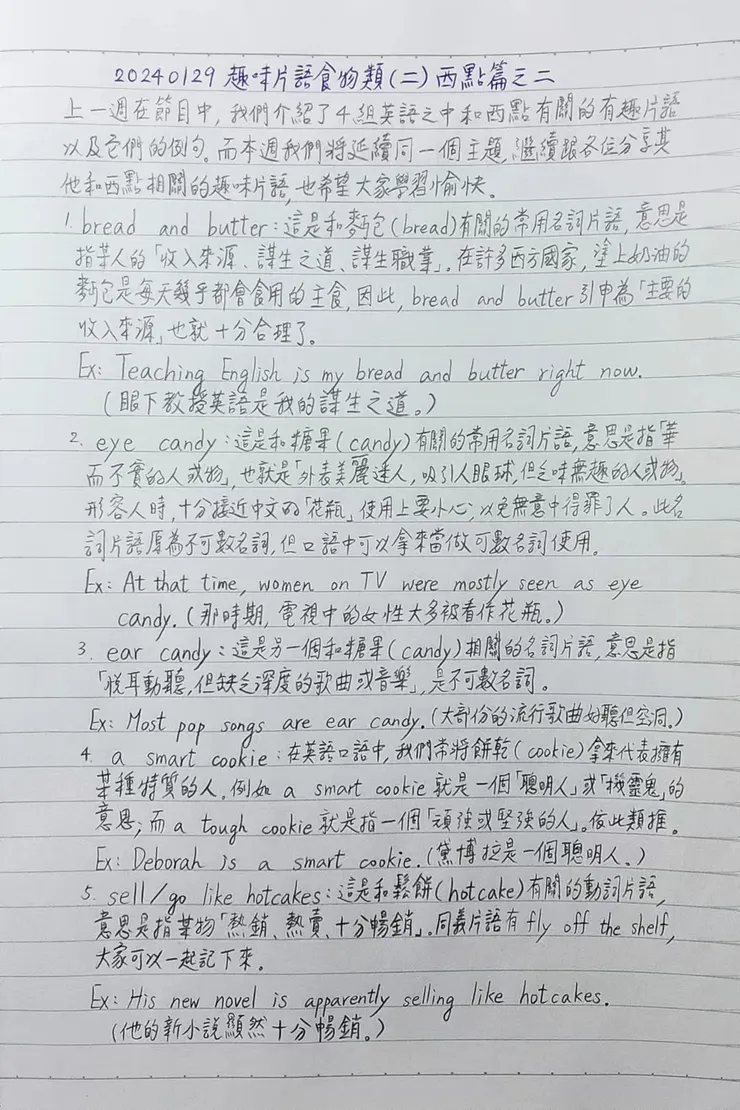 20240129 趣味片語食物類(二) 西點篇之二
上一週在節目中, 我們介紹了4組英語之中和西點有關的有趣片語
以及它們的例句。而本週我們將延續同一個主題, 繼續跟各位分享其
他和西點相關的趣味片語, 也希望大家學習愉快。
1. bread and butter: 這是和麵包(bread)有關的常用名詞片語, 意思是
指某人的「收入來源、謀生之道、謀生職業」。在許多西方國家, 塗上奶油的
麵包是每天幾乎都會食用的主食, 因此, bread and butter 引申為「主要的
收入來源」也就十分合理了。
Ex: Teaching English is my bread and butter right now.
(眼下教授英語是我的謀生之道。)
2. eye candy: 這是和糖果(candy)有關的常用名詞片語, 意思是指「華
而不實的人或物」, 也就是「外表美麗迷人, 吸引人眼球, 但乏味無趣的人或物」。
形容人時, 十分接近中文的「花瓶」使用上要小心, 以免無意中得罪了人。此名
詞片語原為不可數名詞, 但口語中可以拿來當做可數名詞使用。
Ex: At that time, women on TV were mostly seen as eye
candy. (那時期, 電視中的女性大多被看作花瓶。)
3. ear candy: 這是另一個和糖果(candy)相關的名詞片語, 意思是指
「悅耳動聽, 但缺乏深度的歌曲或音樂」, 是不可數名詞。
Ex: Most pop songs are ear candy. (大部份的流行歌曲好聽但空洞。)
4. a smart cookie: 在英語口語中, 我們常將餅乾(cookie)拿來代表擁有
某種特質的人。例如 a smart cookie 就是一個「聰明人」或「機靈鬼」的
意思; 而 a tough cookie 就是指一個「頑強或堅強的人」。依此類推。
Ex: Deborah is a smart cookie. (黛博拉是一個聰明人。)
5. sell/go like hotcakes: 這是和鬆餅(hotcake)有關的動詞片語,
意思是指某物「熱銷、熱賣、十分暢銷」。同義片語有 fly off the shelf,
大家可以一起記下來。
Ex: His new novel is apparently selling like hotcakes.
(他的新小說顯然十分暢銷。)